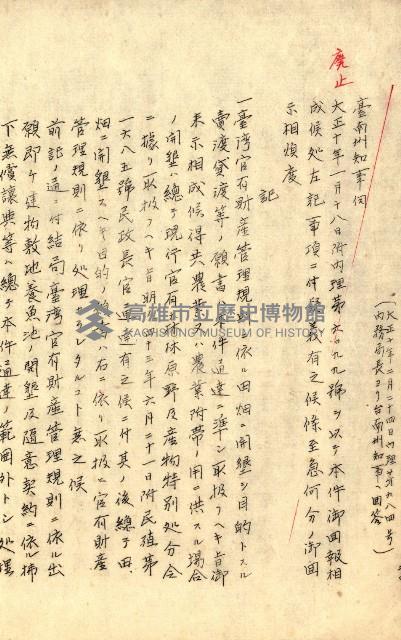 廃止
臺南州知事伺
(大正十年二月二十四日内理第九八四号
内務局長ヨリ台南州知事ヘ回答)
大正十年一月十八日附内理第六〇九九號ヲ以テ本件御回報相
成候処左記事項ニ付疑義有之候條至急何分ノ御回
示相煩度
記
一臺湾官有財産管理規則ニ依ル田畑ニ開墾ヲ目的トスル
賣渡貸渡等ノ願書ハ本件通達ニ準シ取扱フヘキ旨御
来示相成候得共農業又ハ農業附帯ノ用ニ供スル場合
ノ開墾ハ總テ現行官有森林原野及産物特別処分令
ニ據リ取扱フヘキ旨明治四十三年六月二十一日附民殖第
一六八五號民政長官通達有之候ニ付其ノ後總テ田
畑ニ開墾スヘキ目的ノ
ハ右ニ依リ取扱ヒ官有財産
管理規則ニ依リ処理シタルコト無之候
前記ノ通ニ付結局臺湾官有財産管理規則ニ依ル出
願即チ建物敷地養魚池ノ開墾及随意契約ニ依ル拂
下無償讓與等ハ總テ本件通達ノ範囲外トシ処理
高雄市立歷史博物館
KAOHSIUNG MUSEUM OF HISTORY